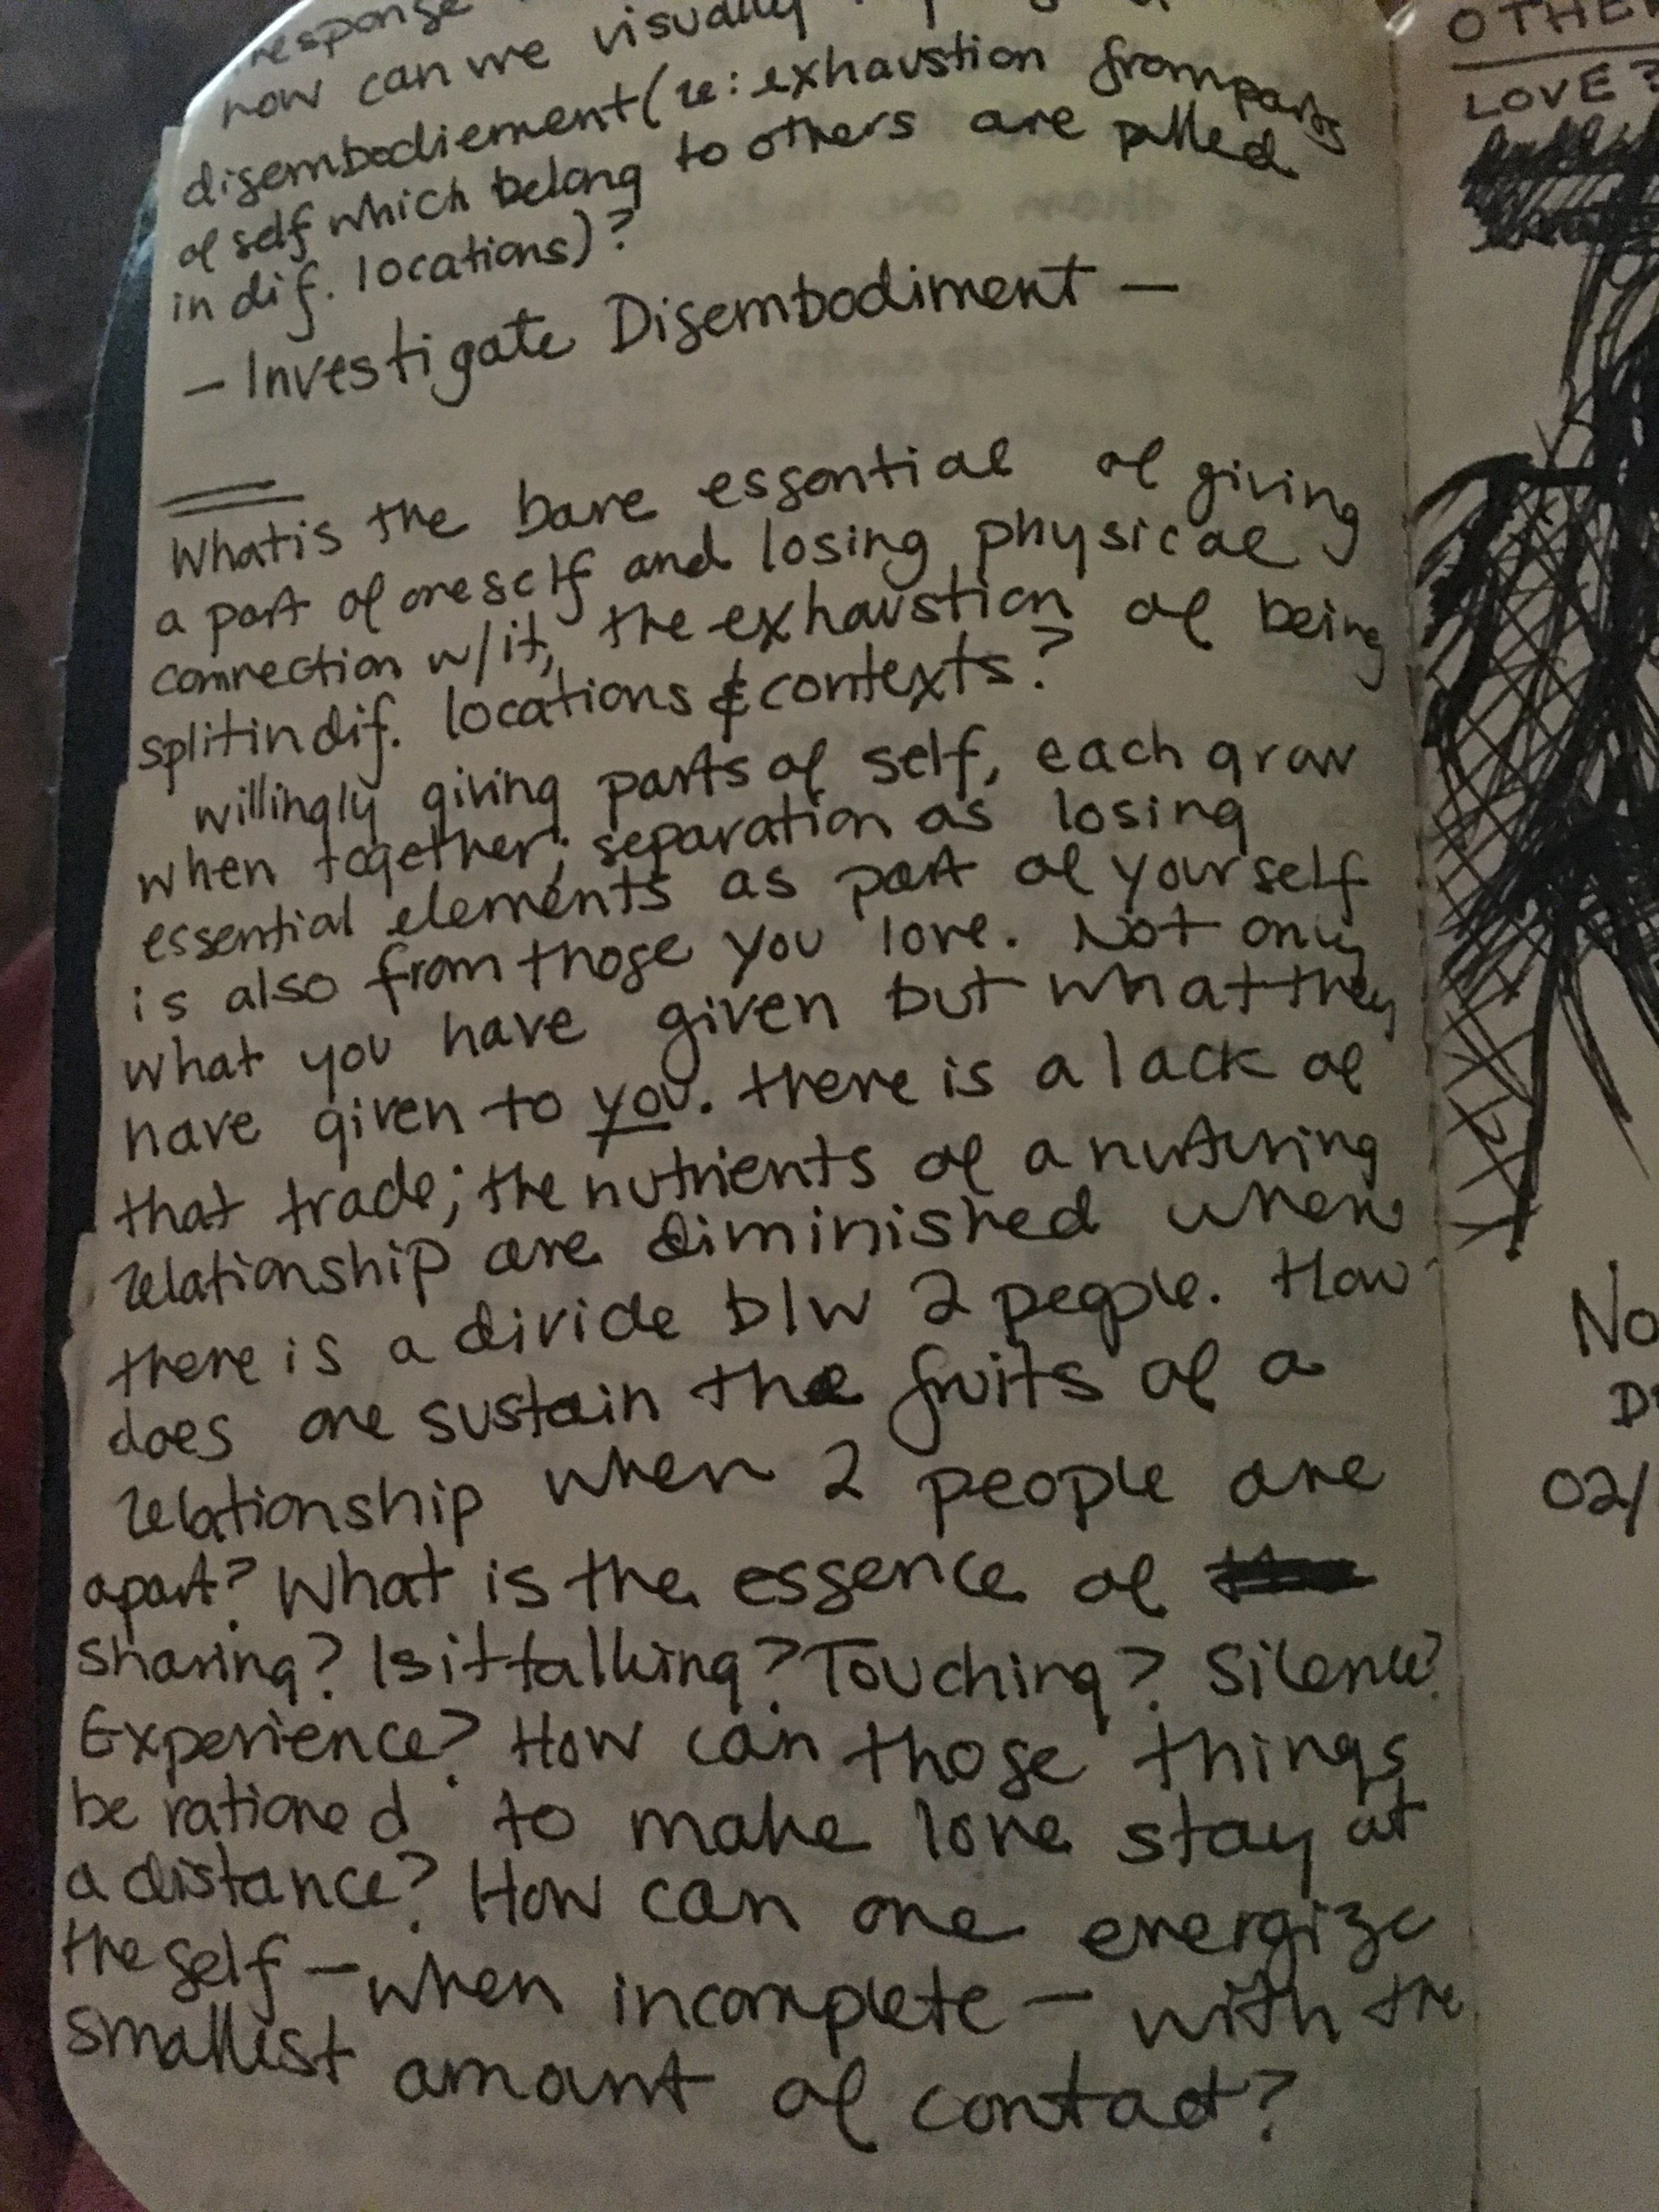 response
how can we visually
disembodiement (re: exhaustion from parts
of self which belong to others are pulled
in dif. locations)?
— Investigate Disembodiment —
What is the bare essential of giving
a part of oneself and losing physical
connection w/it, the exhaustion of being
split in dif. locations & contexts?
willingly giving parts of self, each grow
when together; separation as losing
essential elements as part of yourself
is also from those you love. Not only
what you have given but what they
have given to you. there is a lack of
that trade; the nutrients of a nurturing
relationship are diminished when
there is a divide b/w 2 people. How
does one sustain the fruits of a
relationship when 2 people are
apart? What is the essence of
sharing? Is it talking? Touching? Silence?
Experience? How can those things
be rationed to make love stay at
a distance? How can one energize
the self — when incomplete — with the
smallest amount of contact?
OTHE
LOVE?
No
D
02/